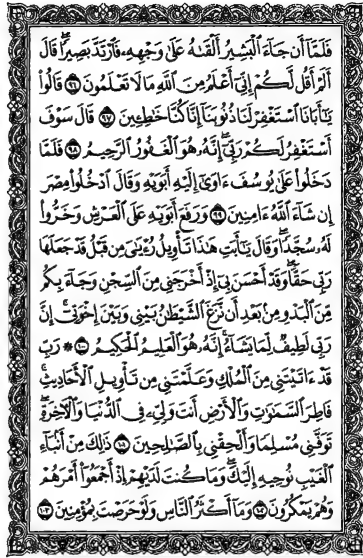 فَلَمَّآ أَن جَآءَ ٱلْبَشِيرُ أَلْقَىٰهُ عَلَىٰ وَجْهِهِۦ فَٱرْتَدَّ بَصِيرًا ۖ قَالَ
أَلَمْ أَقُل لَّكُمْ إِنِّىٓ أَعْلَمُ مِنَ ٱللَّهِ مَا لَا تَعْلَمُونَ ٩٦ قَالُوا۟
يَٰٓأَبَانَا ٱسْتَغْفِرْ لَنَا ذُنُوبَنَآ إِنَّا كُنَّا خَٰطِـِٔينَ ٩٧ قَالَ سَوْفَ
أَسْتَغْفِرُ لَكُمْ رَبِّىٓ ۖ إِنَّهُۥ هُوَ ٱلْغَفُورُ ٱلرَّحِيمُ ٩٨ فَلَمَّا
دَخَلُوا۟ عَلَىٰ يُوسُفَ ءَاوَىٰٓ إِلَيْهِ أَبَوَيْهِ وَقَالَ ٱدْخُلُوا۟ مِصْرَ
إِن شَآءَ ٱللَّهُ ءَامِنِينَ ٩٩ وَرَفَعَ أَبَوَيْهِ عَلَى ٱلْعَرْشِ وَخَرُّوا۟
لَهُۥ سُجَّدًا ۖ وَقَالَ يَٰٓأَبَتِ هَٰذَا تَأْوِيلُ رُءْيَٰىَ مِن قَبْلُ قَدْ جَعَلَهَا
رَبِّى حَقًّا ۖ وَقَدْ أَحْسَنَ بِىٓ إِذْ أَخْرَجَنِى مِنَ ٱلسِّجْنِ وَجَآءَ بِكُم
مِّنَ ٱلْبَدْوِ مِنۢ بَعْدِ أَن نَّزَغَ ٱلشَّيْطَٰنُ بَيْنِى وَبَيْنَ إِخْوَتِىٓ ۚ إِنَّ
رَبِّى لَطِيفٌ لِّمَا يَشَآءُ ۚ إِنَّهُۥ هُوَ ٱلْعَلِيمُ ٱلْحَكِيمُ ١٠٠ ۞ رَبِّ
قَدْ ءَاتَيْتَنِى مِنَ ٱلْمُلْكِ وَعَلَّمْتَنِى مِن تَأْوِيلِ ٱلْأَحَادِيثِ ۚ
فَاطِرَ ٱلسَّمَٰوَٰتِ وَٱلْأَرْضِ أَنتَ وَلِىِّۦ فِى ٱلدُّنْيَا وَٱلْءَاخِرَةِ ۖ
تَوَفَّنِى مُسْلِمًا وَأَلْحِقْنِى بِٱلصَّٰلِحِينَ ١٠١ ذَٰلِكَ مِنْ أَنۢبَآءِ
ٱلْغَيْبِ نُوحِيهِ إِلَيْكَ ۖ وَمَا كُنتَ لَدَيْهِمْ إِذْ أَجْمَعُوٓا۟ أَمْرَهُمْ
وَهُمْ يَمْكُرُونَ ١٠٢ وَمَآ أَكْثَرُ ٱلنَّاسِ وَلَوْ حَرَصْتَ بِمُؤْمِنِينَ ١٠٣